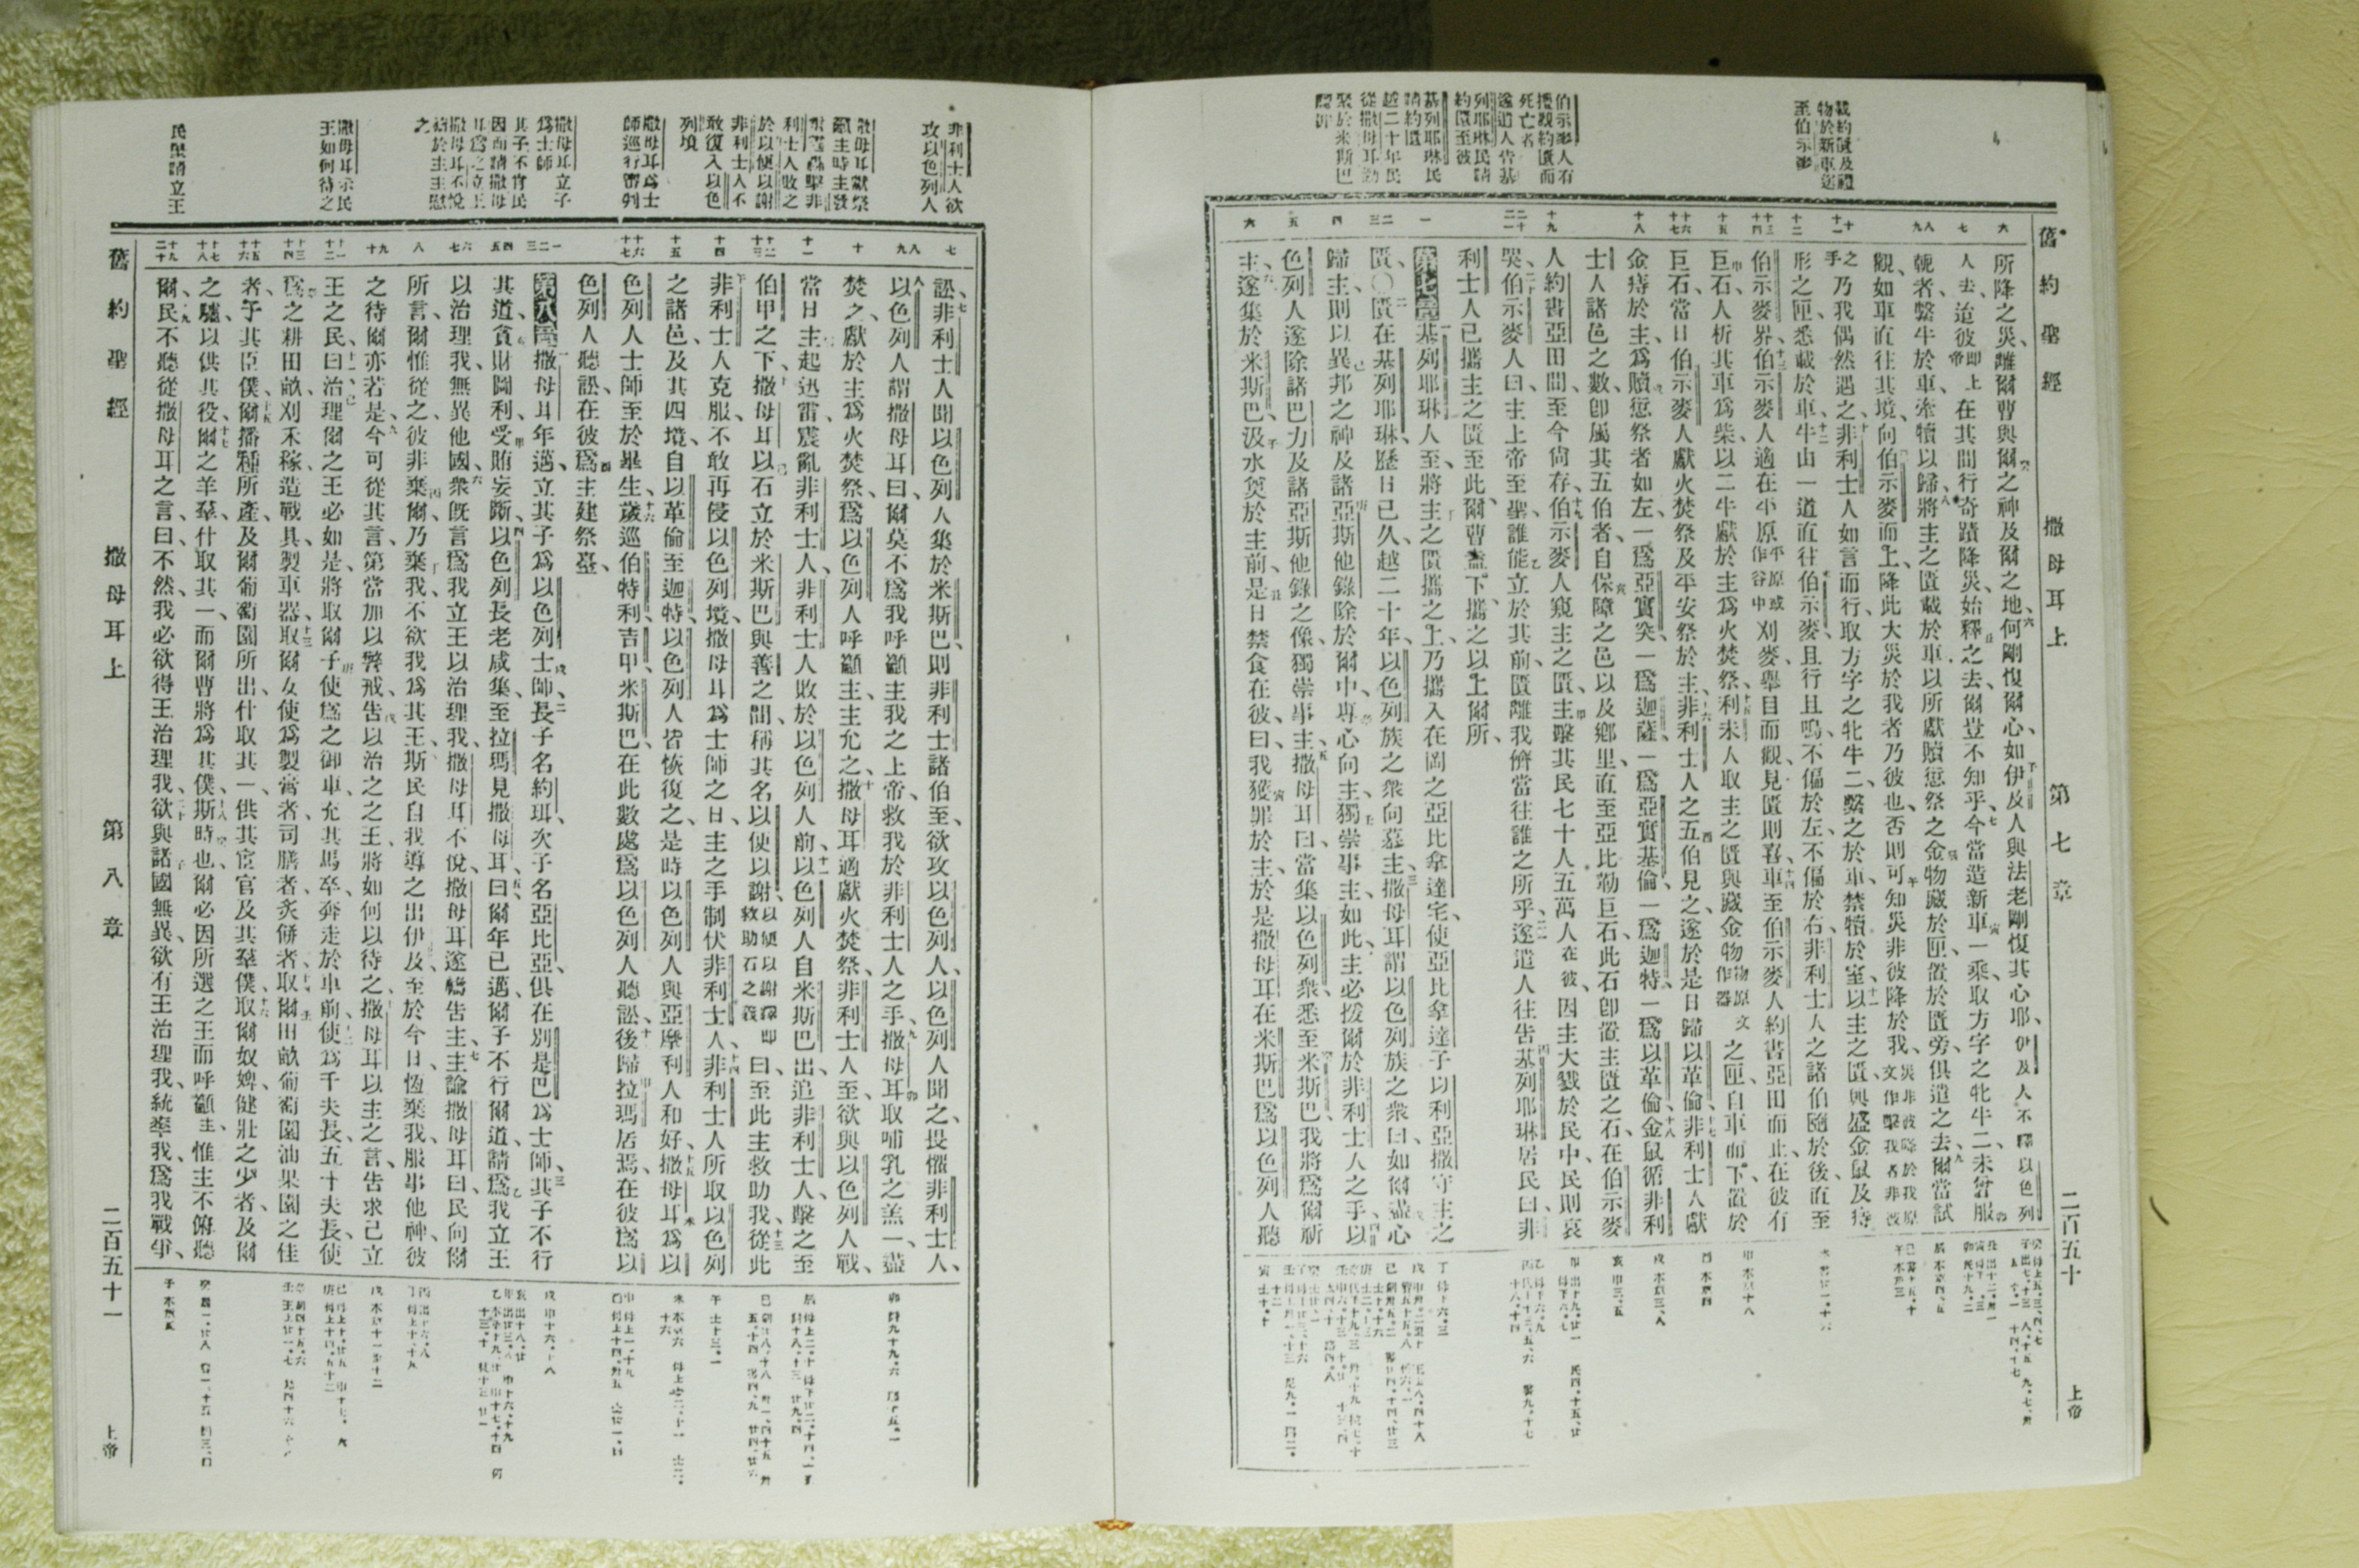 舊約聖經
撒母耳上
第七章
二百五十
上帝
載約匱及禮
物於新車送
至伯示麥
伯示麥人有
擅觀約匱而
死亡者
遂遣人告基
列耶琳民請
約匱至彼
基列耶琳民
請約匱
越二十年民
從撒母耳勸
聚於米斯巴
所降之災、離爾曹與爾之神及爾之地、何剛愎爾心、如伊及人與法老剛愎其心耶、伊及人不釋以色列
人去、迨彼即上帝在其間行奇蹟降災、始釋之去、爾豈不知乎、今當造新車一乘、取方字之牝牛二、未嘗服
軛者、繫牛於車、牽犢以歸、將主之匱載於車、以所獻贖愆祭之金物藏於匣、置於匱旁、俱遣之去、爾當試
觀、如車直往其境、向伯示麥而上、降此大災於我者乃彼也、否則可知災非彼降於我、災非彼降於我原文作擊我者非彼
之手乃我偶然遇之、非利士人如言而行、取方字之牝牛二、繫之於車、禁犢於室、以主之匱與盛金鼠及痔
形之匣、悉載於車、牛由一道直往伯示麥、且行且鳴、不偏於左、不偏於右、非利士人之諸伯隨於後、直至
伯示麥界、伯示麥人適在平原平原或作谷中刈麥、舉目而觀、見匱則喜、車至伯示麥人約書亞田而止、在彼有
巨石、人析其車爲柴、以二牛獻於主爲火焚祭、利未人取主之匱與藏金物物原文作器之匣、自車而下、置於
巨石、當日伯示麥人獻火焚祭及平安祭於主、非利士人之五伯見之、遂於是日歸以革倫、非利士人獻
金痔於主、爲贖愆祭者如左、一爲亞實突、一爲迦薩、一爲亞實基倫、一爲迦特、一爲以革倫、金鼠循非利
士人諸邑之數、卽屬其五伯者、自保障之邑以及鄉里、直至亞比勒巨石、此石卽置主匱之石、在伯示麥
人約書亞田間、至今尙存、伯示麥人窺主之匱、主擊其民七十人五萬人、在彼因主大戮於民中、民則哀
哭、伯示麥人曰、主上帝至聖、誰能立於其前、匱離我儕當往誰之所乎、遂遣人往告基列耶琳居民曰、非
利士人已攜主之匱至此、爾曹盍下、攜之以上爾所、
第七章基列耶琳人至、將主之匱攜之上、乃攜入在岡之亞比拿達宅、使亞比拿達子以利亞撒守主之
匱、〇匱在基列耶琳、歷日已久、越二十年、以色列族之衆向慕主、撒母耳謂以色列族之衆曰、如爾盡心
歸主、則以異邦之神及諸亞斯他錄除於爾中、專心向主、獨崇事主、如此、主必拯爾於非利士人之手、以
色列人遂除諸巴力及諸亞斯他錄之像、獨崇事主、撒母耳曰、當集以色列衆、悉至米斯巴、我將爲爾祈
主、遂集於米斯巴、汲水奠於主前、是日禁食在彼、曰、我獲罪於主、於是撒母耳在米斯巴爲以色列人聽
非利士人欲
攻以色列人
撒母耳獻祭
籲主時主發
震雷擊非
利士人敗之
於以便以謝
非利士人不
敢復入以色
列境
撒母耳爲士
師巡行審判
撒母耳立子
爲士師
其子不肖民
因而請撒母
耳爲之立王
撒母耳不悅
禱於主主慰
之
撒母耳示民
王如何待之
民衆請立王
訟、非利士人聞以色列人集於米斯巴、則非利士諸伯至、欲攻以色列人、以色列人聞之、畏懼非利士人、
以色列人謂撒母耳曰、爾莫不爲我呼籲主我之上帝、救我於非利士人之手、撒母耳取哺乳之羔一、盡
焚之、獻於主爲火焚祭、爲以色列人呼籲主、主允之、撒母耳適獻火焚祭、非利士人至、欲與以色列人戰、
當日主起迅雷、震亂非利士人、非利士人敗於以色列人前、以色列人自米斯巴出、追非利士人、擊之至
伯甲之下、撒母耳以石立於米斯巴與善之間、稱其名以便以謝、以便以謝譯即救助石之義曰、至此主救助我、從此
非利士人克服、不敢再侵以色列境、撒母耳爲士師之日、主之手制伏非利士人、非利士人所取以色列
之諸邑、及其四境、自以革倫至迦特、以色列人皆恢復之、是時以色列人與亞摩利人和好、撒母耳爲以
色列人士師、至於畢生、歲巡伯特利、吉甲、米斯巴、在此數處爲以色列人聽訟、後歸拉瑪居焉、在彼爲以
色列人聽訟、在彼爲主建祭臺、
第八章撒母耳年邁、立其子爲以色列士師、長子名約珥、次子名亞比亞、俱在別是巴爲士師、其子不行
其道、貪財圖利、受賄妄斷、以色列長老咸集、至拉瑪見撒母耳、曰、爾年已邁、爾子不行爾道、請爲我立王
以治理我、無異他國、衆旣言爲我立王以治理我、撒母耳不悅、撒母耳遂禱告主、主諭撒母耳曰、民向爾
所言、爾惟從之、彼非棄爾、乃棄我、不欲我爲其王、斯民自我導之出伊及、至於今日、恆棄我、服事他神、彼
之待爾亦若是、今可從其言、第當加以警戒、告以治之之王、將如何以待之、撒母耳以主之言、告求己立
王之民、曰、治理爾之王必如是、將取爾子使爲之御車、充其馬卒、奔走於車前、使爲千夫長、五十夫長、使
爲之耕田畝、刈禾稼、造戰具、製車器、取爾女使爲製膏者、司膳者、炙餅者、取爾田畝葡萄園油果園之佳
者、予其臣僕、爾播種所產、及爾葡萄園所出、什取其一、供其宦官及其羣僕、取爾奴婢、健壯之少者、及爾
之驢、以供其役、爾之羊羣、什取其一、而爾曹將爲其僕、斯時也、爾必因所選之王而呼籲主、惟主不俯聽
爾、民不聽從撒母耳之言、曰、不然、我必欲得王治理我、欲與諸國無異、欲有王治理我、統率我、爲我戰爭、
舊約聖經
撒母耳上
第八章
二百五十一
上帝